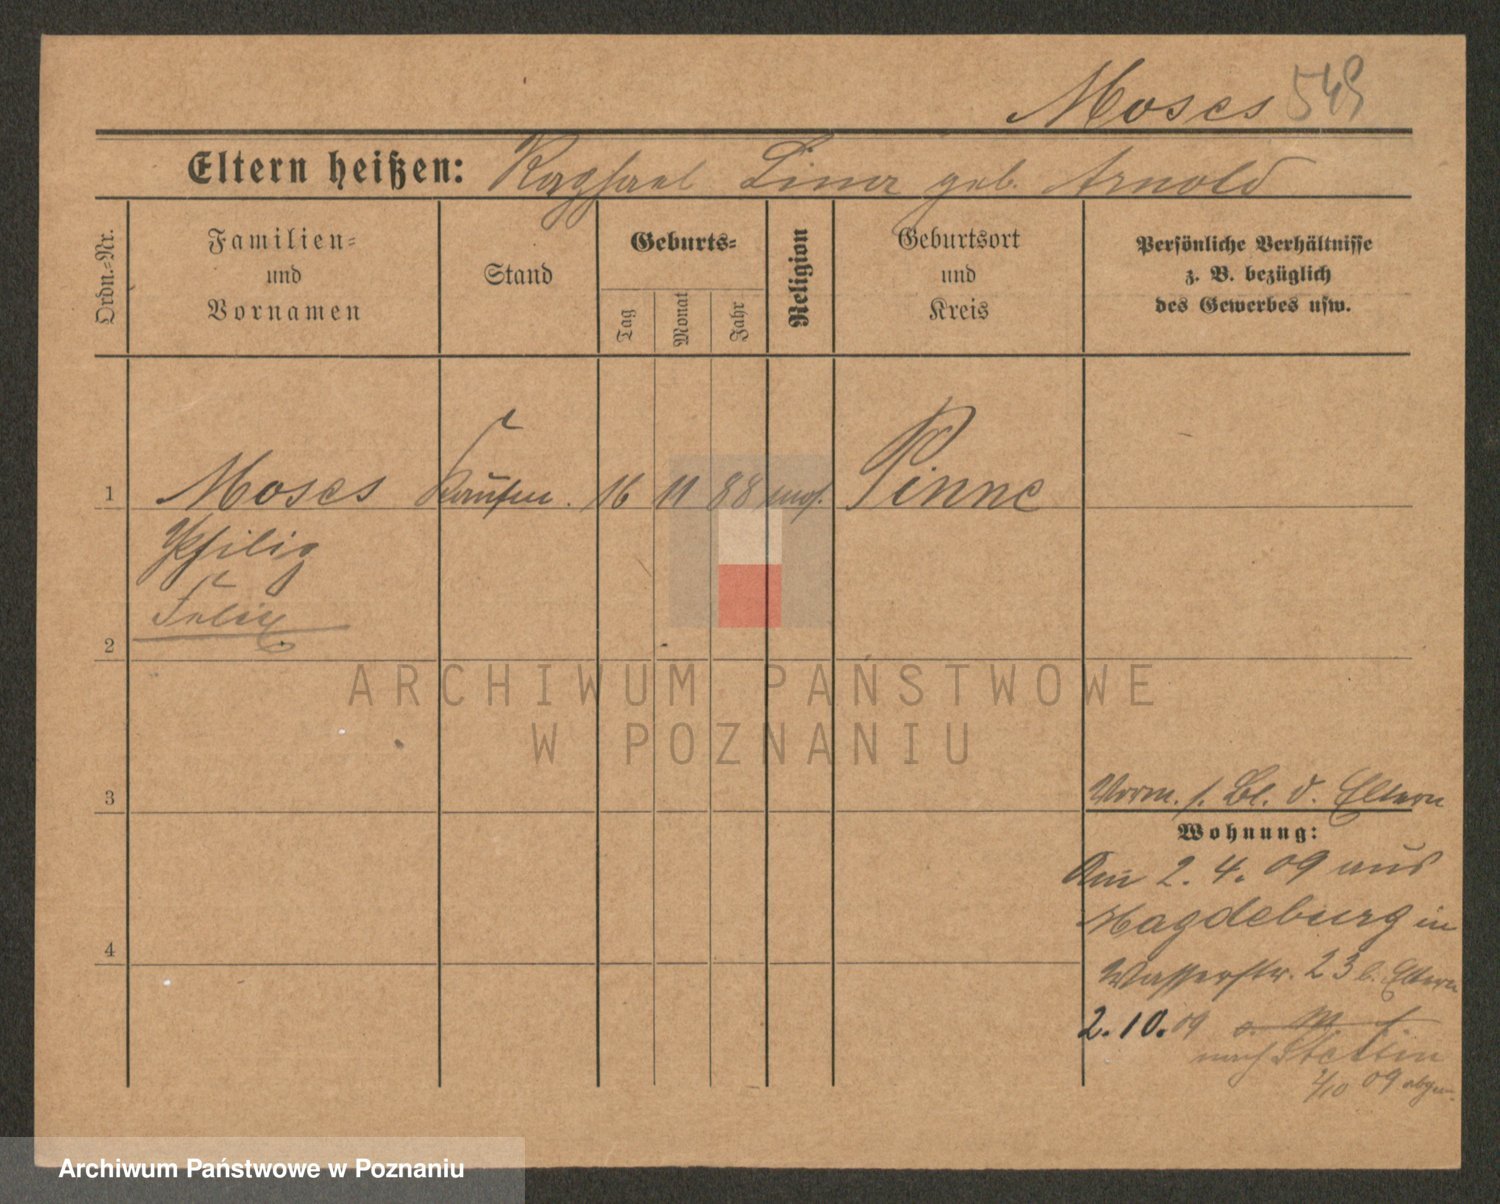 Moses 549
Eltern heißen: Raphael Lina geb. Arnold
Ordn.-Nr.
Familien-
und
Vornamen
Stand
Geburts-
Tag
Monat
Jahr
Religion
Geburtsort
und
Kreis
Persönliche Verhältnisse
z. B. bezüglich
des Gewerbes usw.
1 Moses Kaufm. 16 11 88 mos. Pinne
Philip
Felix
2
ARCHIWUM PAŃSTWOWE
W POZNANIU
3
Verm. s. Bl. d. Eltern
Wohnung:
Am 2. 4. 09 aus
Magdeburg in
4
Wasserstr. 23 b. Eltern
2.10.09
nach Stettin
2/10 09 abgem.
Archiwum Państwowe w Poznaniu